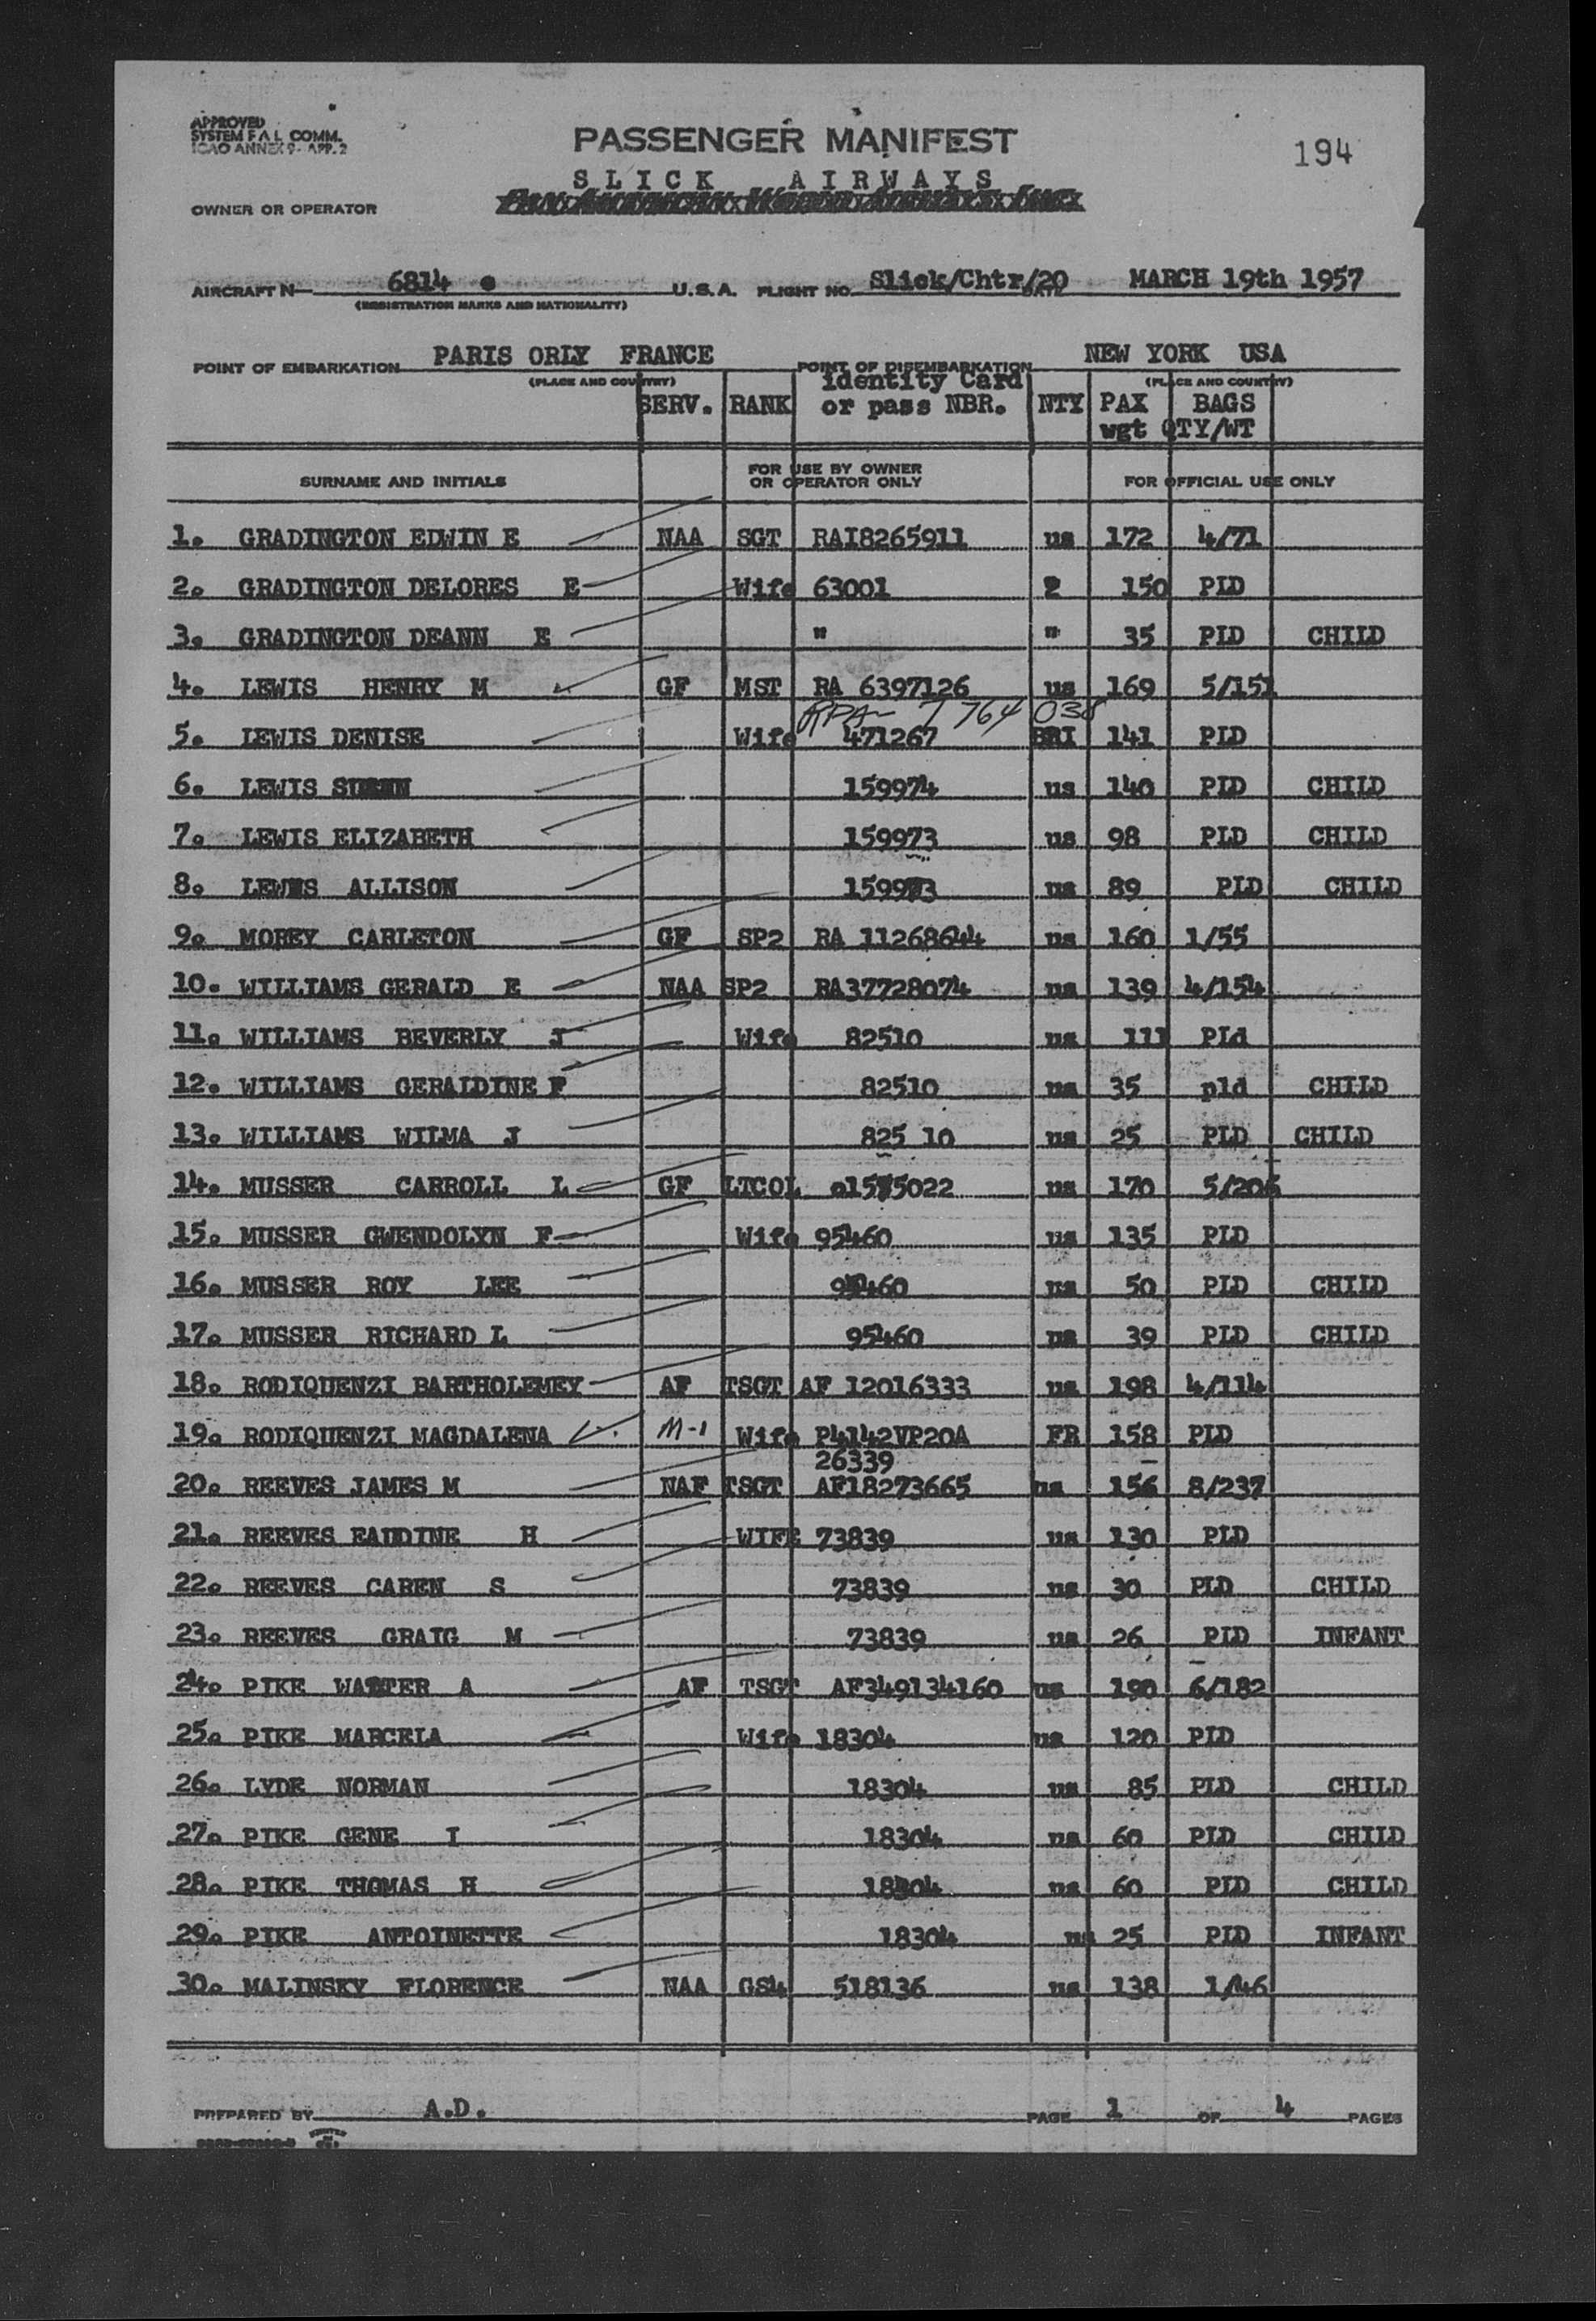 APPROVED
SYSTEM F A L COMM.
ICAO ANNEX 9- APP. 2
PASSENGER MANIFEST
194
SLICK AIRWAYS
OWNER OR OPERATOR
AIRCRAFT N— 6814 U.S.A. FLIGHT NO. Slick/Chtr/20 DATE MARCH 19th 1957
(REGISTRATION MARKS AND NATIONALITY)
POINT OF EMBARKATION PARIS ORLY FRANCE POINT OF DISEMBARKATION NEW YORK USA
(PLACE AND COUNTRY) (PLACE AND COUNTRY)
SERV. RANK identity Card or pass NBR. NTY PAX wgt BAGS QTY/WT
SURNAME AND INITIALS FOR USE BY OWNER OR OPERATOR ONLY FOR OFFICIAL USE ONLY
1. GRADINGTON EDWIN E NAA SGT RA18265911 us 172 4/71
2. GRADINGTON DELORES E Wife 63001 150 PLD
3. GRADINGTON DEANN E " " 35 PLD CHILD
4. LEWIS HENRY M GF MST RA 6397126 us 169 5/151
RPA- I 764 038
5. LEWIS DENISE Wife 471267 BRI 141 PLD
6. LEWIS 159974 us 140 PLD CHILD
7. LEWIS ELIZABETH 159973 us 98 PLD CHILD
8. LEWIS ALLISON 159973 us 89 PLD CHILD
9. MOREY CARLETON GF SP2 RA 11268644 us 160 1/55
10. WILLIAMS GERALD E NAA SP2 RA37728074 us 139 4/154
11. WILLIAMS BEVERLY J Wife 82510 us 111 PLd
12. WILLIAMS GERALDINE F 82510 us 35 pld CHILD
13. WILLIAMS WILMA J 825 10 us 25 PLD CHILD
14. MUSSER CARROLL L GF LTCOL o1575022 us 170 5/206
15. MUSSER GWENDOLYN F Wife 95460 us 135 PLD
16. MUSSER ROY LEE 95460 us 50 PLD CHILD
17. MUSSER RICHARD L 95460 us 39 PLD CHILD
18. RODIQUENZI BARTHOLEMEY AF TSGT AF 12016333 us 198 4/114
19. RODIQUENZI MAGDALENA M-1 Wife P4142VP20A FR 158 PLD
26339
20. REEVES JAMES M NAF TSGT AF18273665 us 156 8/237
21. REEVES EAUDINE H WIFE 73839 us 130 PLD
22. REEVES CAREN S 73839 us 30 PLD CHILD
23. REEVES GRAIG M 73839 us 26 PLD INFANT
24. PIKE WALTER A AF TSGT AF349134160 us 190 6/182
25. PIKE MARCELA Wife 18304 us 120 PLD
26. LYDE NORMAN 18304 us 85 PLD CHILD
27. PIKE GENE I 18304 us 60 PLD CHILD
28. PIKE THOMAS H 18304 us 60 PLD CHILD
29. PIKE ANTOINETTE 18304 us 25 PLD INFANT
30. MALINSKY FLORENCE NAA GS4 518136 us 138 1/46
PREPARED BY A.D. PAGE 1 OF 4 PAGES